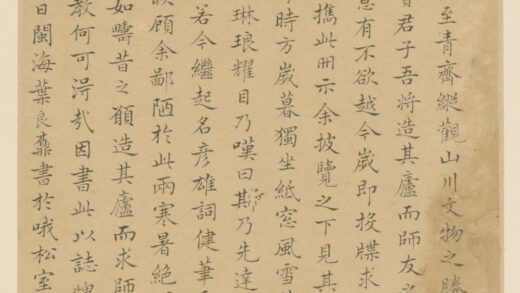 至青齊縱觀山川文物之勝
君子吾將造其廬而師友之
息有不欲越今歲即投牒求
攜此冊示余披覽之下見其
時方歲暮獨坐紙窓風雪
琳琅耀目乃嘆曰斯乃先達
若今繼起名彥雄詞健筆
顧余鄙陋於此兩寒暑絕
如疇昔之願造其廬而求師
教何可淂哉因書此以誌
日閩海葉良書於哦松室